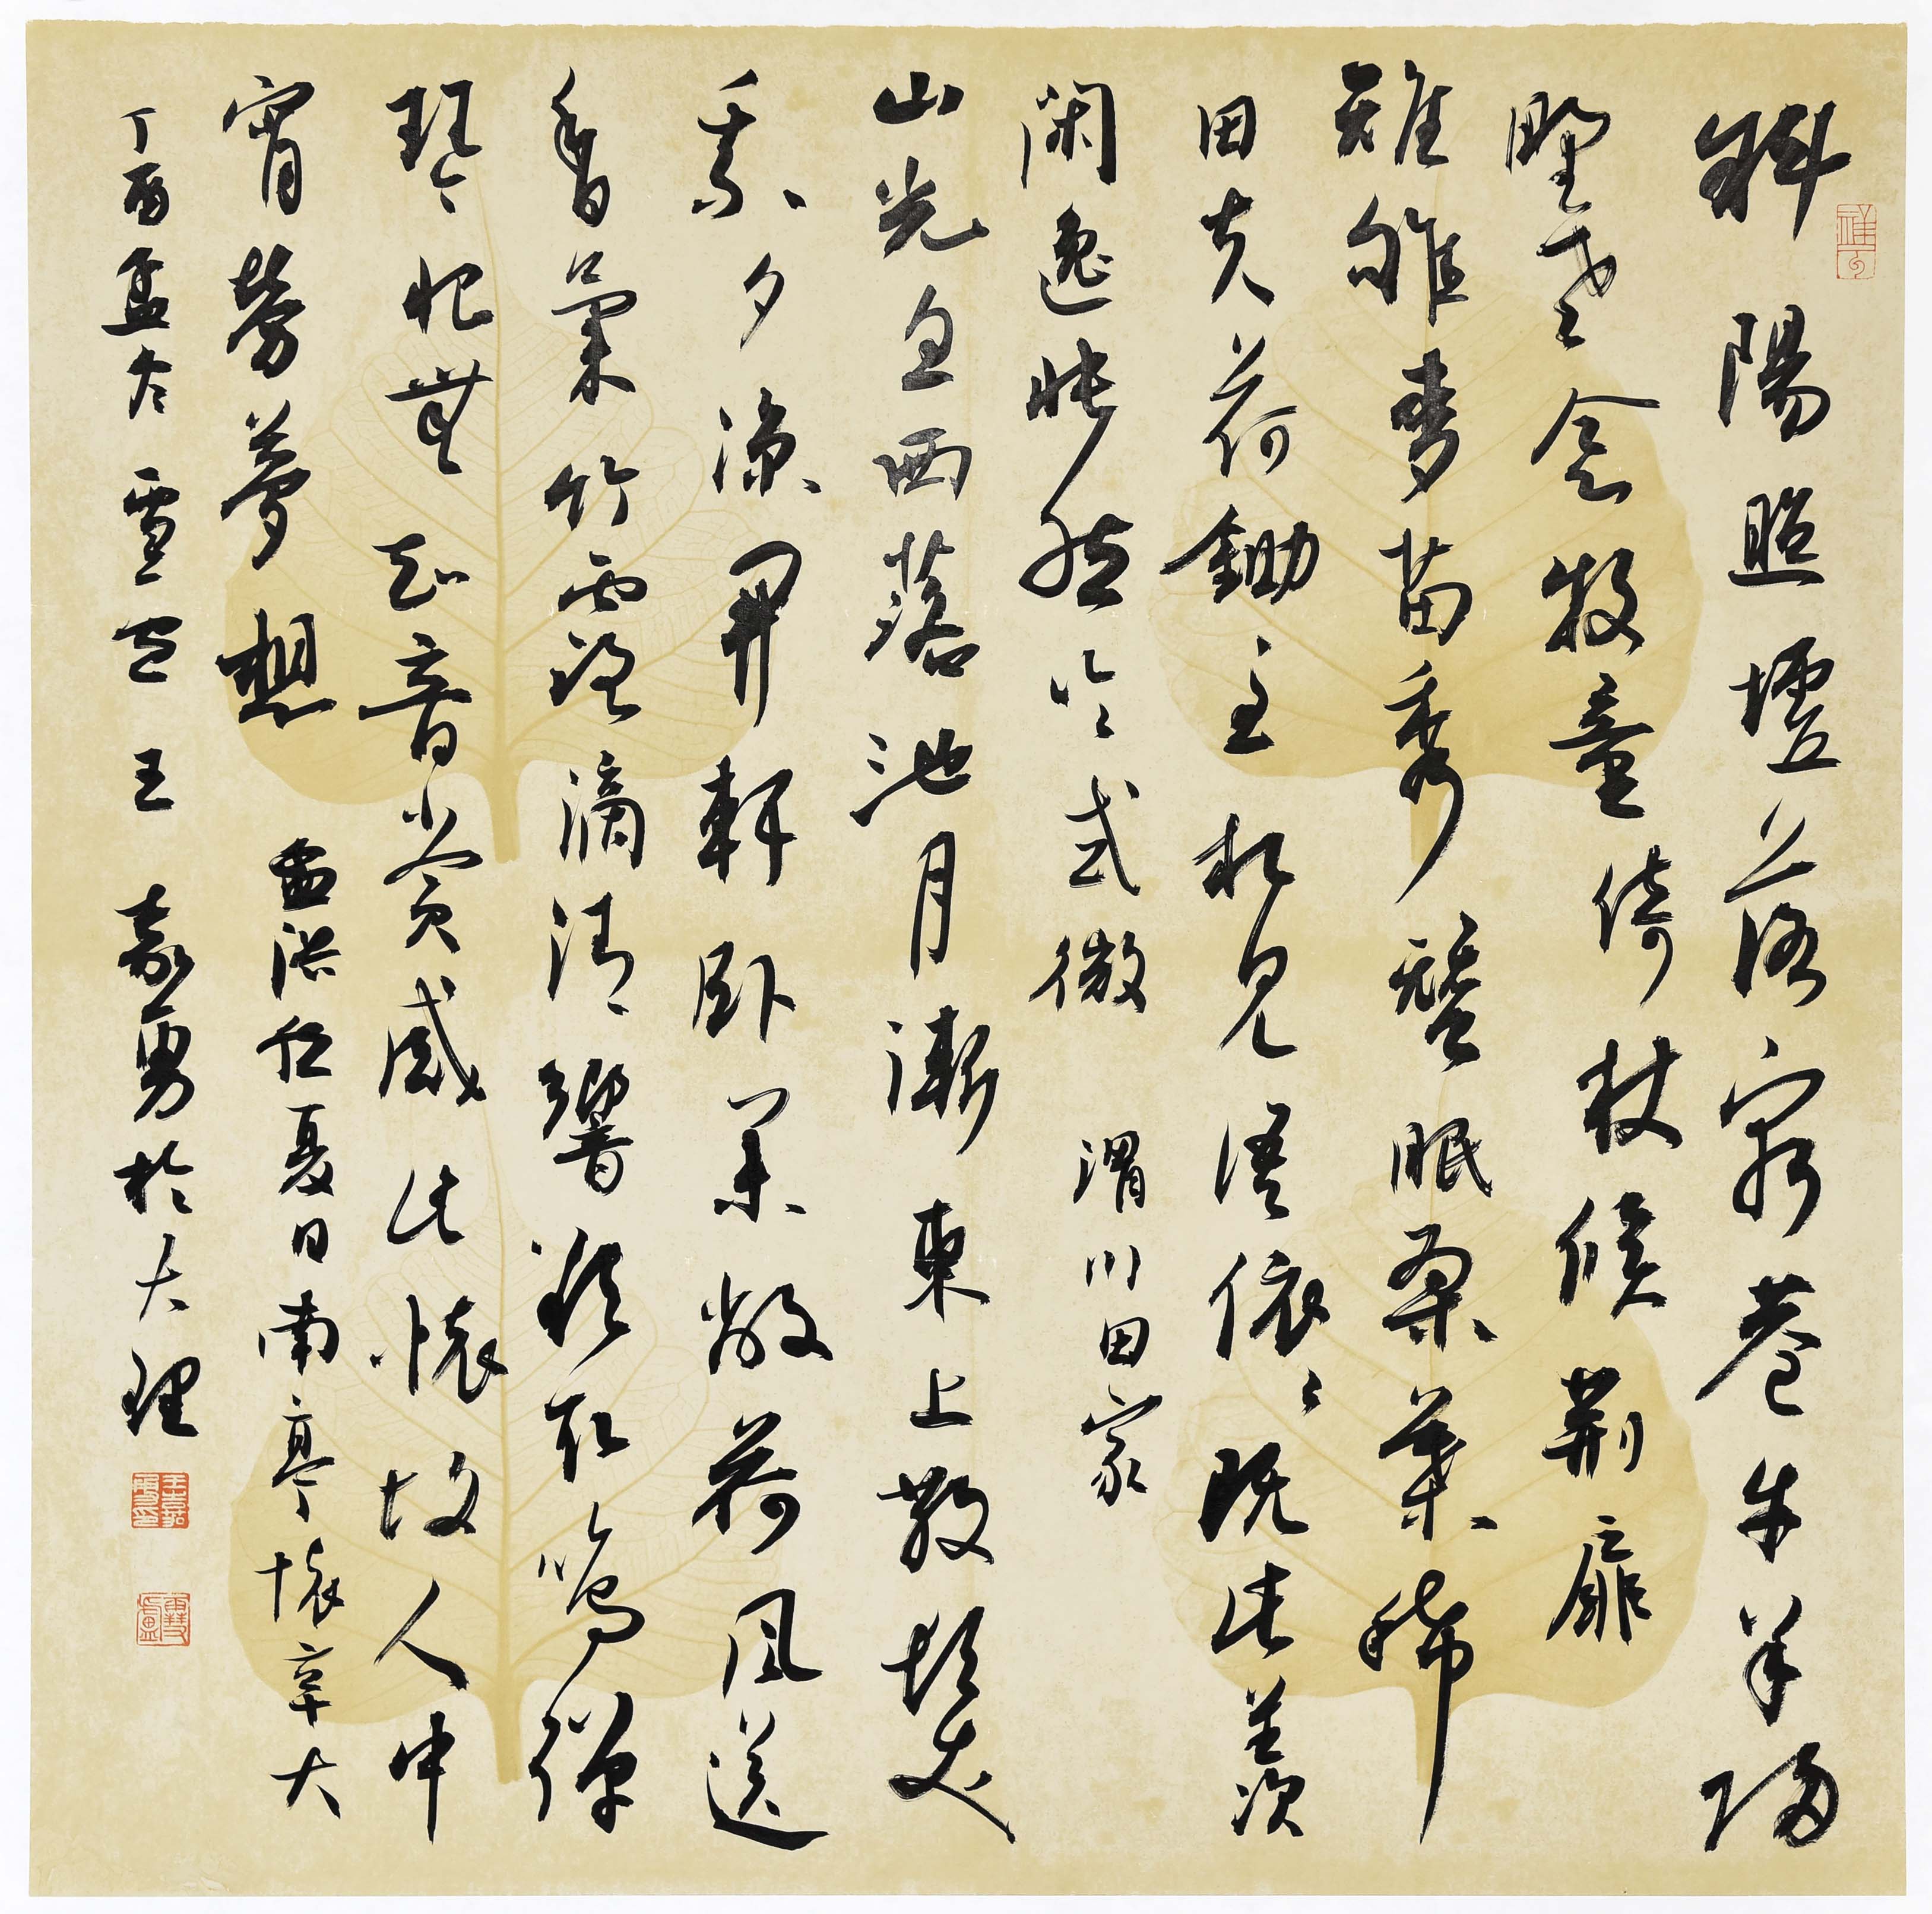 斜陽照墟落窮巷牛羊歸
野老念牧童倚杖候荊扉
雉雊麥苗秀蠶眠桑葉稀
田夫荷鋤至相見語依依既此羨
閑逸悵然吟式微 渭川田家
山光忽西落池月漸東上散髮
乘夕涼開軒卧閑敞荷風送
香氣竹露滴清響欲取鳴彈
琴恨無知音賞感此懷故人中
宵勞夢想 孟浩然夏日南亭懷辛大
丁酉孟冬 王嘉勇於大理
王嘉勇印